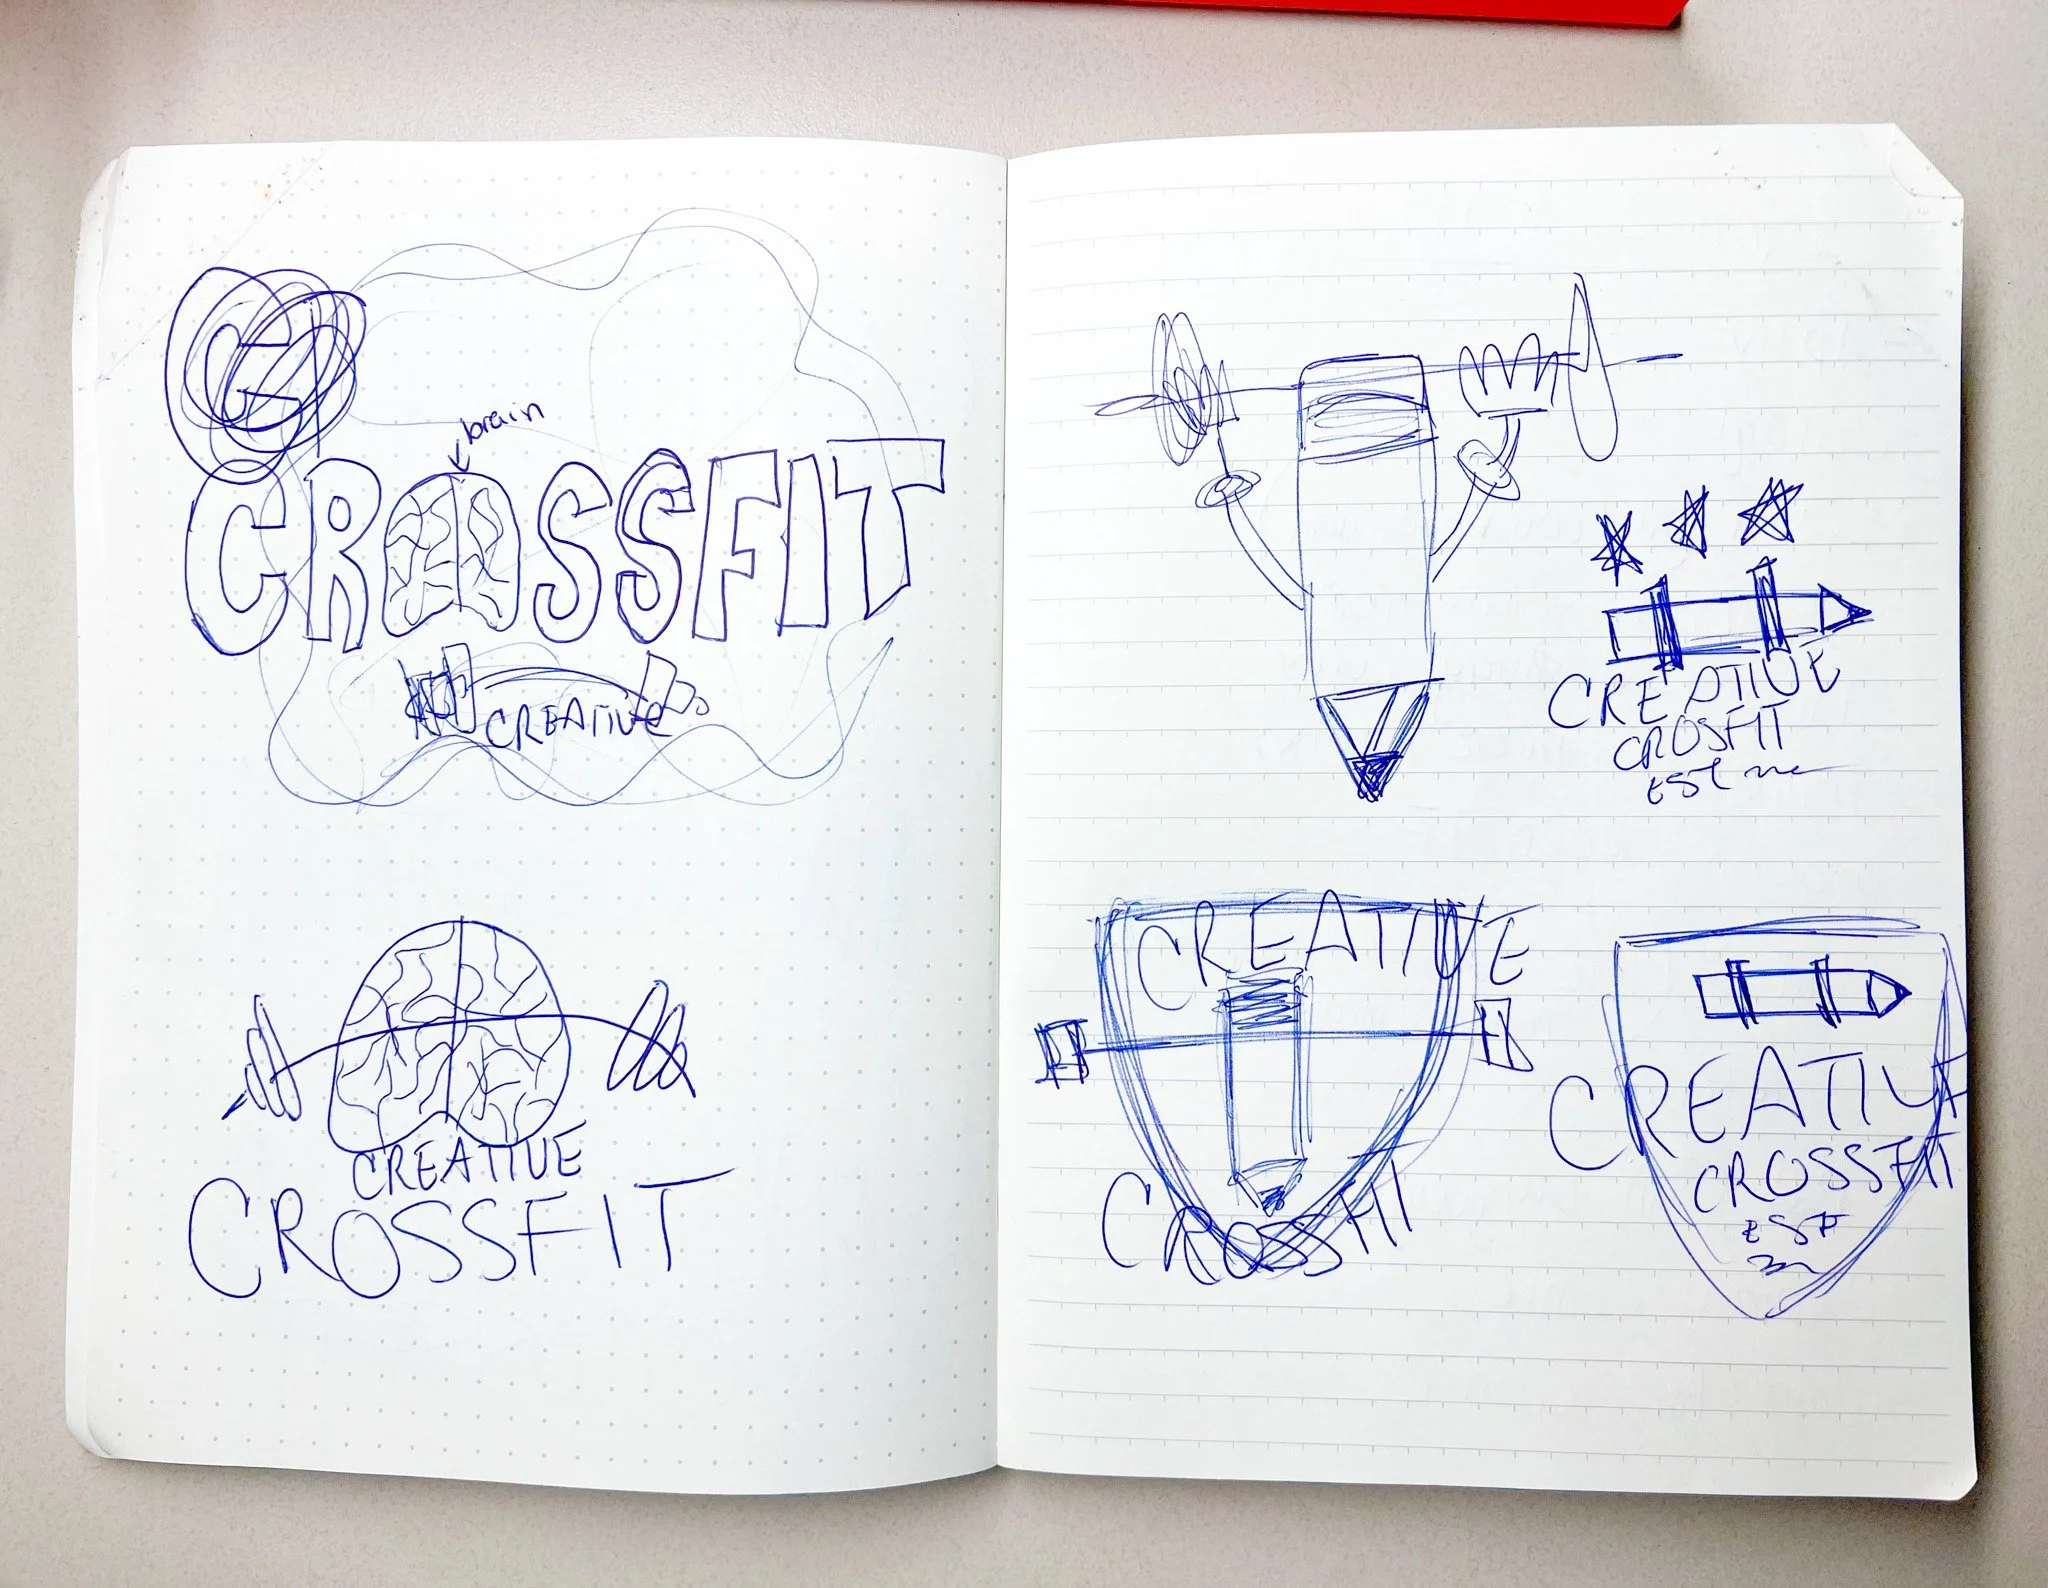 brain
CROSSFIT
CREATIVE
CREATIVE
CROSSFIT
CREATIVE
CROSFIT
EST
CREATIVE
CROSSFIT
CREATIVE
CROSSFIT
EST